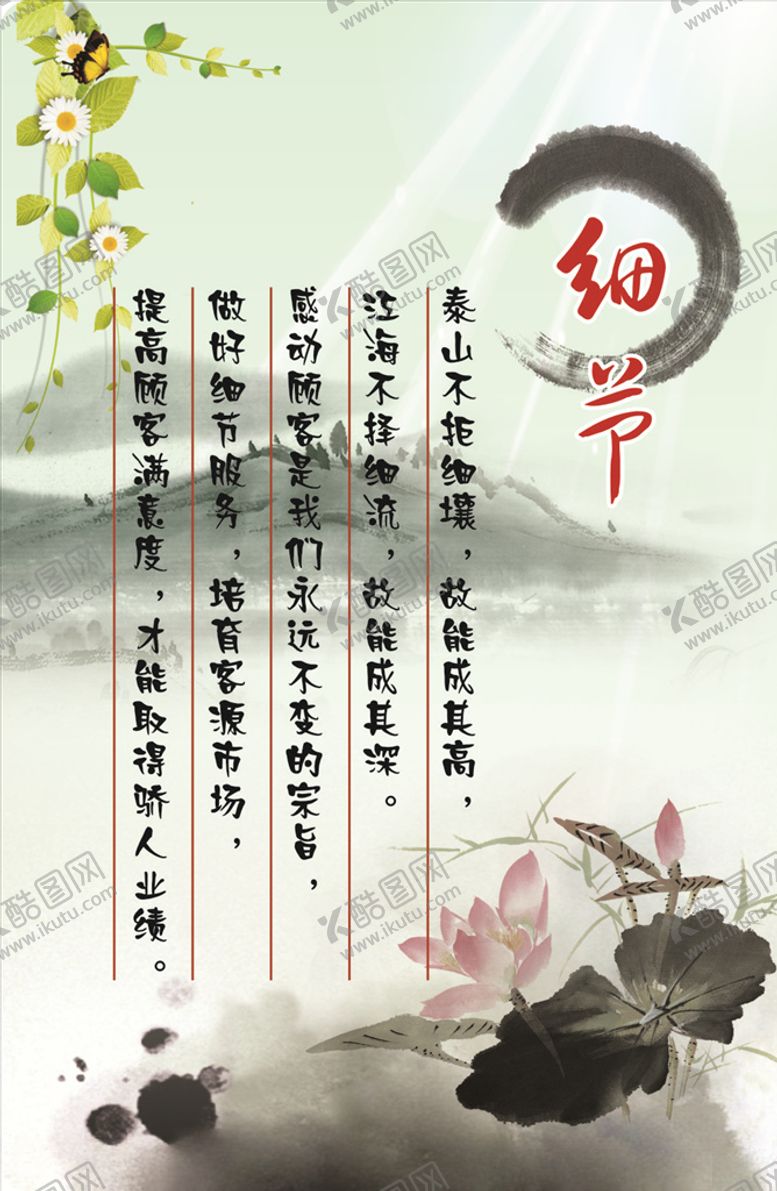 细节
泰山不拒细壤，故能成其高，
江海不择细流，故能成其深。
感动顾客是我们永远不变的宗旨，
做好细节服务，培育客源市场，
提高顾客满意度，才能取得骄人业绩。
酷图网
www.ikutu.com